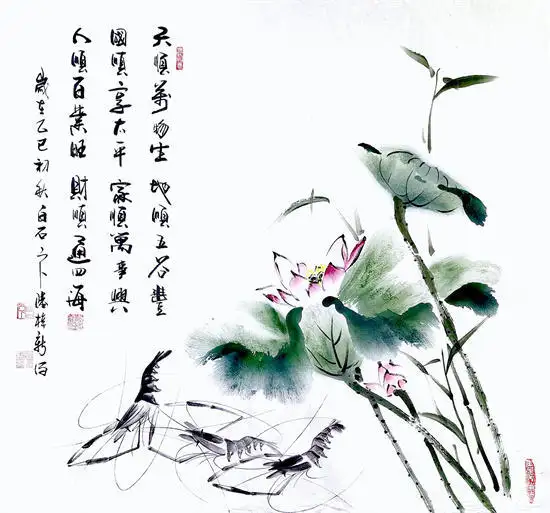 天順萬物生 地順五谷豐
國順享太平 家順萬事興
人順百業旺 財順通四海
歲在乙巳初秋白石门下